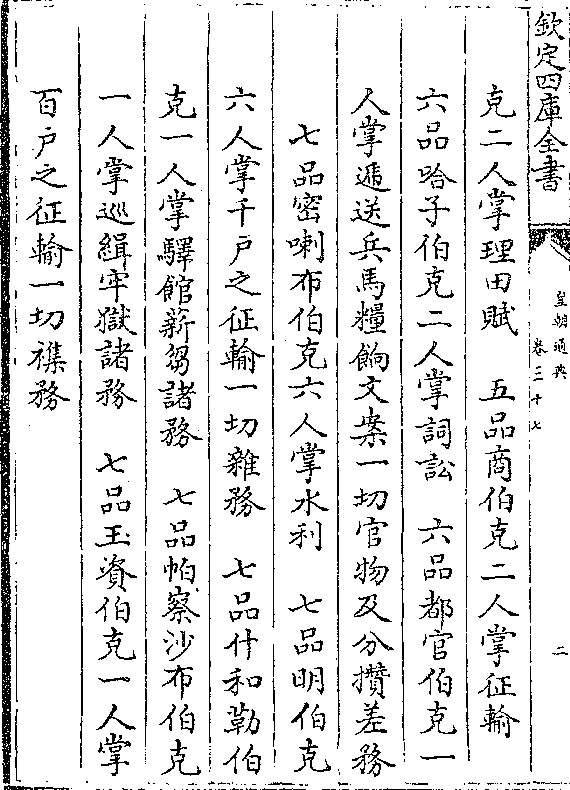 欽定四庫全書
皇朝通典
卷三十七
二
克二人掌理田賦　五品商伯克二人掌征輸
六品哈子伯克二人掌詞訟　六品都官伯克一
人掌遞送兵馬糧餉文案一切官物及分攢差務
七品密喇布伯克六人掌水利　七品明伯克
六人掌千戸之征輸一切雜務　七品什和勒伯
克一人掌驛館薪芻諸務　七品帕察沙布伯克
一人掌巡緝牢獄諸務　七品玉資伯克一人掌
百戸之征輸一切襍務